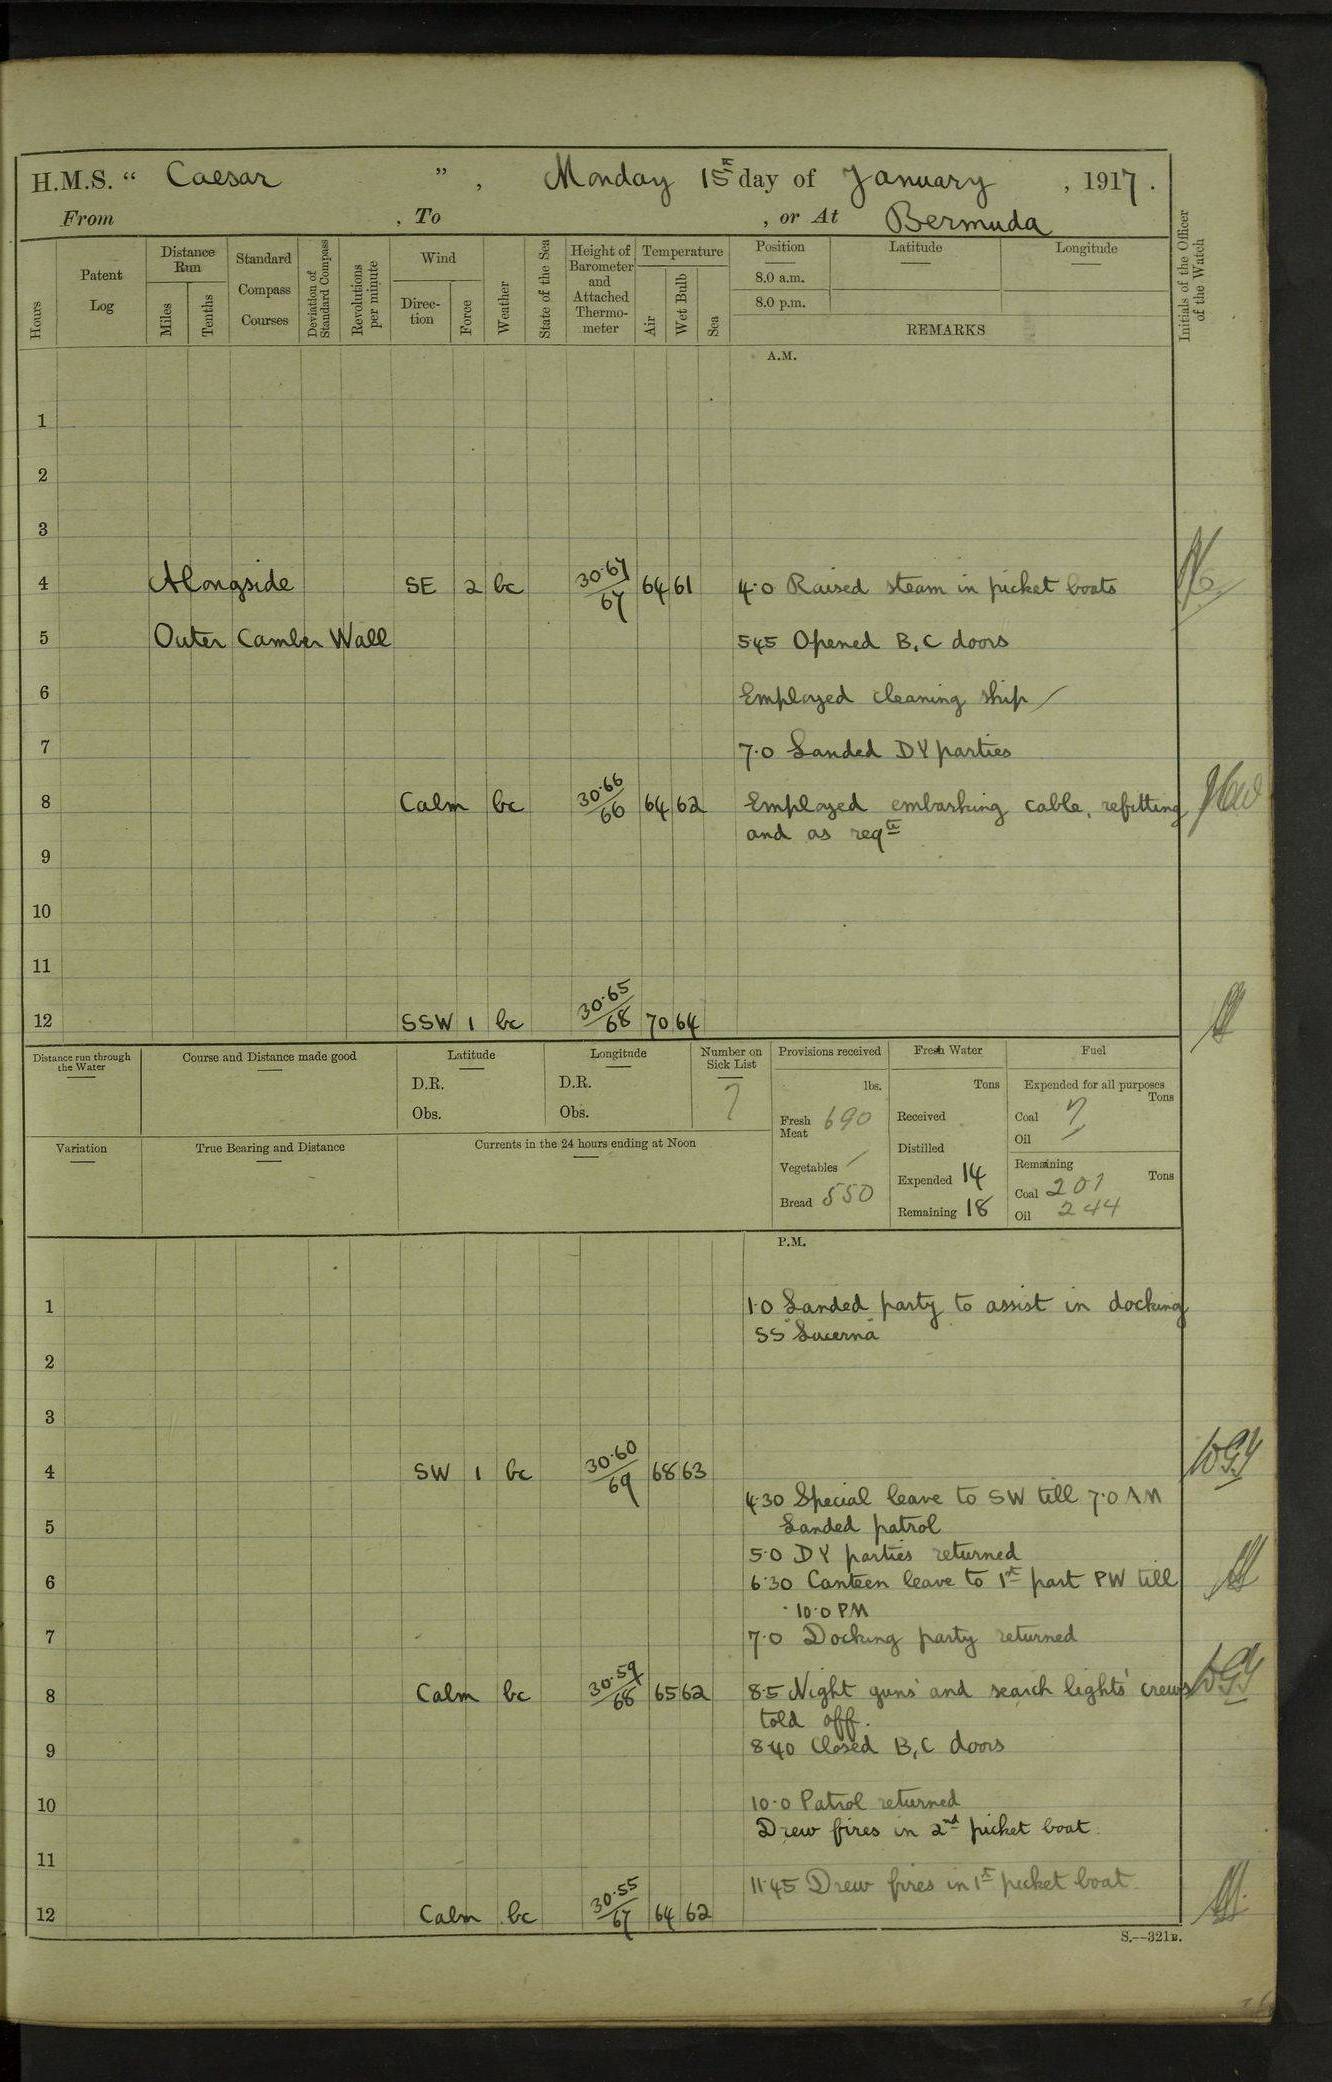 H.M.S. “ Caesar ” , Monday 15th day of January , 1917 .
From , To , or At Bermuda
Hours
Patent Log
Distance Run
Miles
Tenths
Standard Compass Courses
Deviation of Standard Compass
Revolutions per minute
Wind
Direc-tion
Force
Weather
State of the Sea
Height of Barometer and Attached Thermo-meter
Temperature
Air
Wet Bulb
Sea
Position
Latitude
Longitude
8.0 a.m.
8.0 p.m.
REMARKS
Initials of the Officer of the Watch
A.M.
1
2
3
4 Alongside SE 2 bc 30·67/67 64 61 4·0 Raised steam in picket boats
5 Outer Camber Wall 545 Opened B, C doors
6 Employed cleaning ship
7 7·0 Landed DY parties
8 Calm bc 30·66/66 64 62 Employed embarking cable, refitting
and as reqte
9
10
11
12 SSW 1 bc 30·65/68 70 64
Distance run through the Water
Course and Distance made good
Latitude
D.R.
Obs.
Longitude
D.R.
Obs.
Number on Sick List
7
Provisions received
lbs.
Fresh Meat 690
Vegetables /
Bread 550
Fresh Water
Tons
Received
Distilled
Expended 14
Remaining 18
Fuel
Expended for all purposes
Tons
Coal 7
Oil /
Remaining
Tons
Coal 201
Oil 244
Variation
True Bearing and Distance
Currents in the 24 hours ending at Noon
P.M.
1 1·0 Landed party to assist in docking
SS "Lucerna"
2
3
4 SW 1 bc 30·60/69 68 63
4·30 Special leave to SW till 7·0 AM
5 Landed patrol
5·0 DY parties returned
6 6·30 Canteen leave to 1st part PW till
10·0 PM
7 7·0 Docking party returned
8 Calm bc 30·59/68 65 62 8·5 Night guns' and search lights' crews
told off.
9 8·40 Closed B, C doors
10 10·0 Patrol returned
Drew fires in 2nd picket boat.
11
11·45 Drew fires in 1st picket boat.
12 Calm bc 30·55/67 64 62
S.—321B.